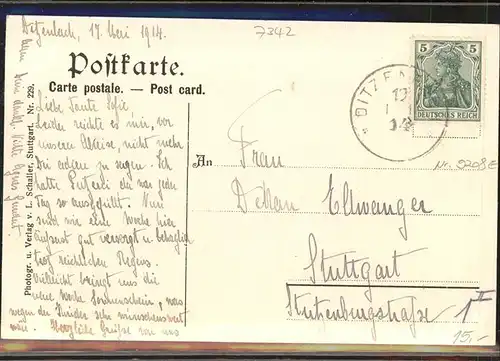 Ditzenbach, 17. Juni 1914.
7342
Postkarte.
Carte postale. — Post card.
Liebe Tante Sofie
Leider reichte es mir, vor
unserer Abreise, nicht mehr
bei euch zu sagen. Ich
hatte die war jeder
Tag so ausgefüllt. Nun
sind wir eine Woche hier
gut versorgt u. behaglich
trotz reichlichen Regens.
Vielleicht bringt uns die
neue Woche Sonnenschein, was
wegen der Kinder sehr wünschenswert
wäre. Herzliche Grüße von uns
allen Deine dankb. Nichte Agnes
Photogr. u. Verlag v. L. Schaller, Stuttgart. Nr. 229.
DITZENB
14
5 5
DEUTSCHES REICH
Nr. 9208E
An Frau
Dekan Ellwanger
Stuttgart
Stitzenburgstraße 1 II
15,-